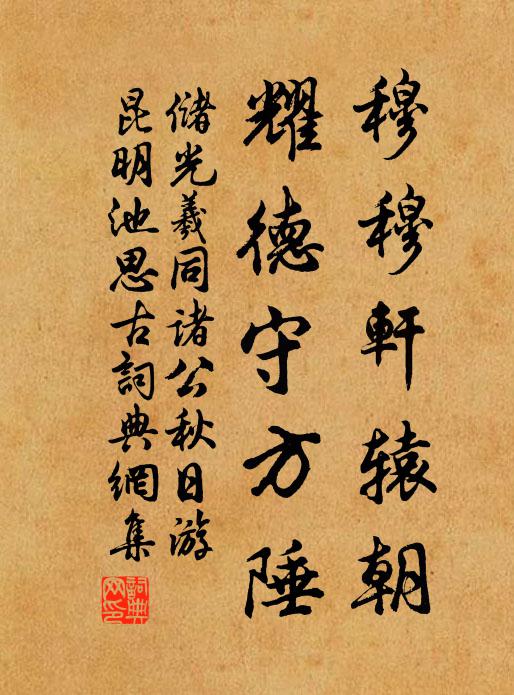 穆穆軒辕朝
耀德守方陲
储光羲同诸公秋日游
昆明池思古詞典網集
詞典網印